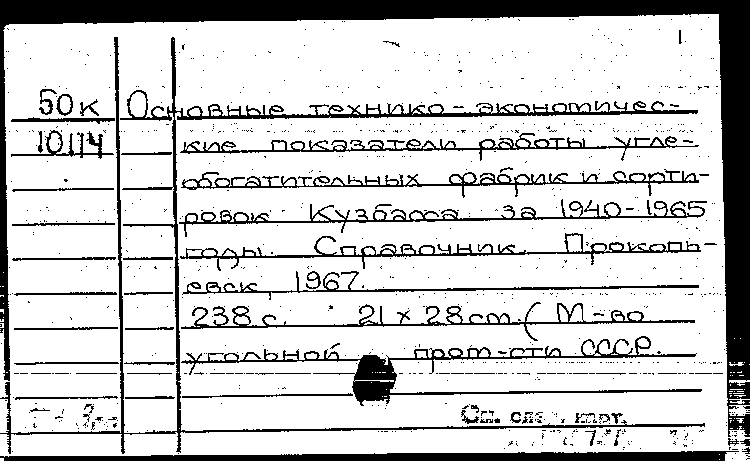 1
50к Основные технико-экономичес-
10114 кие показатели работы угле-
обогатительных фабрик и сорти-
ровок Кузбасса за 1940-1965
годы. Справочник. Прокопь-
евск, 1967.
238 с. 21 x 28 cm. (М-во
угольной пром-сти СССР.
См. след. карт.